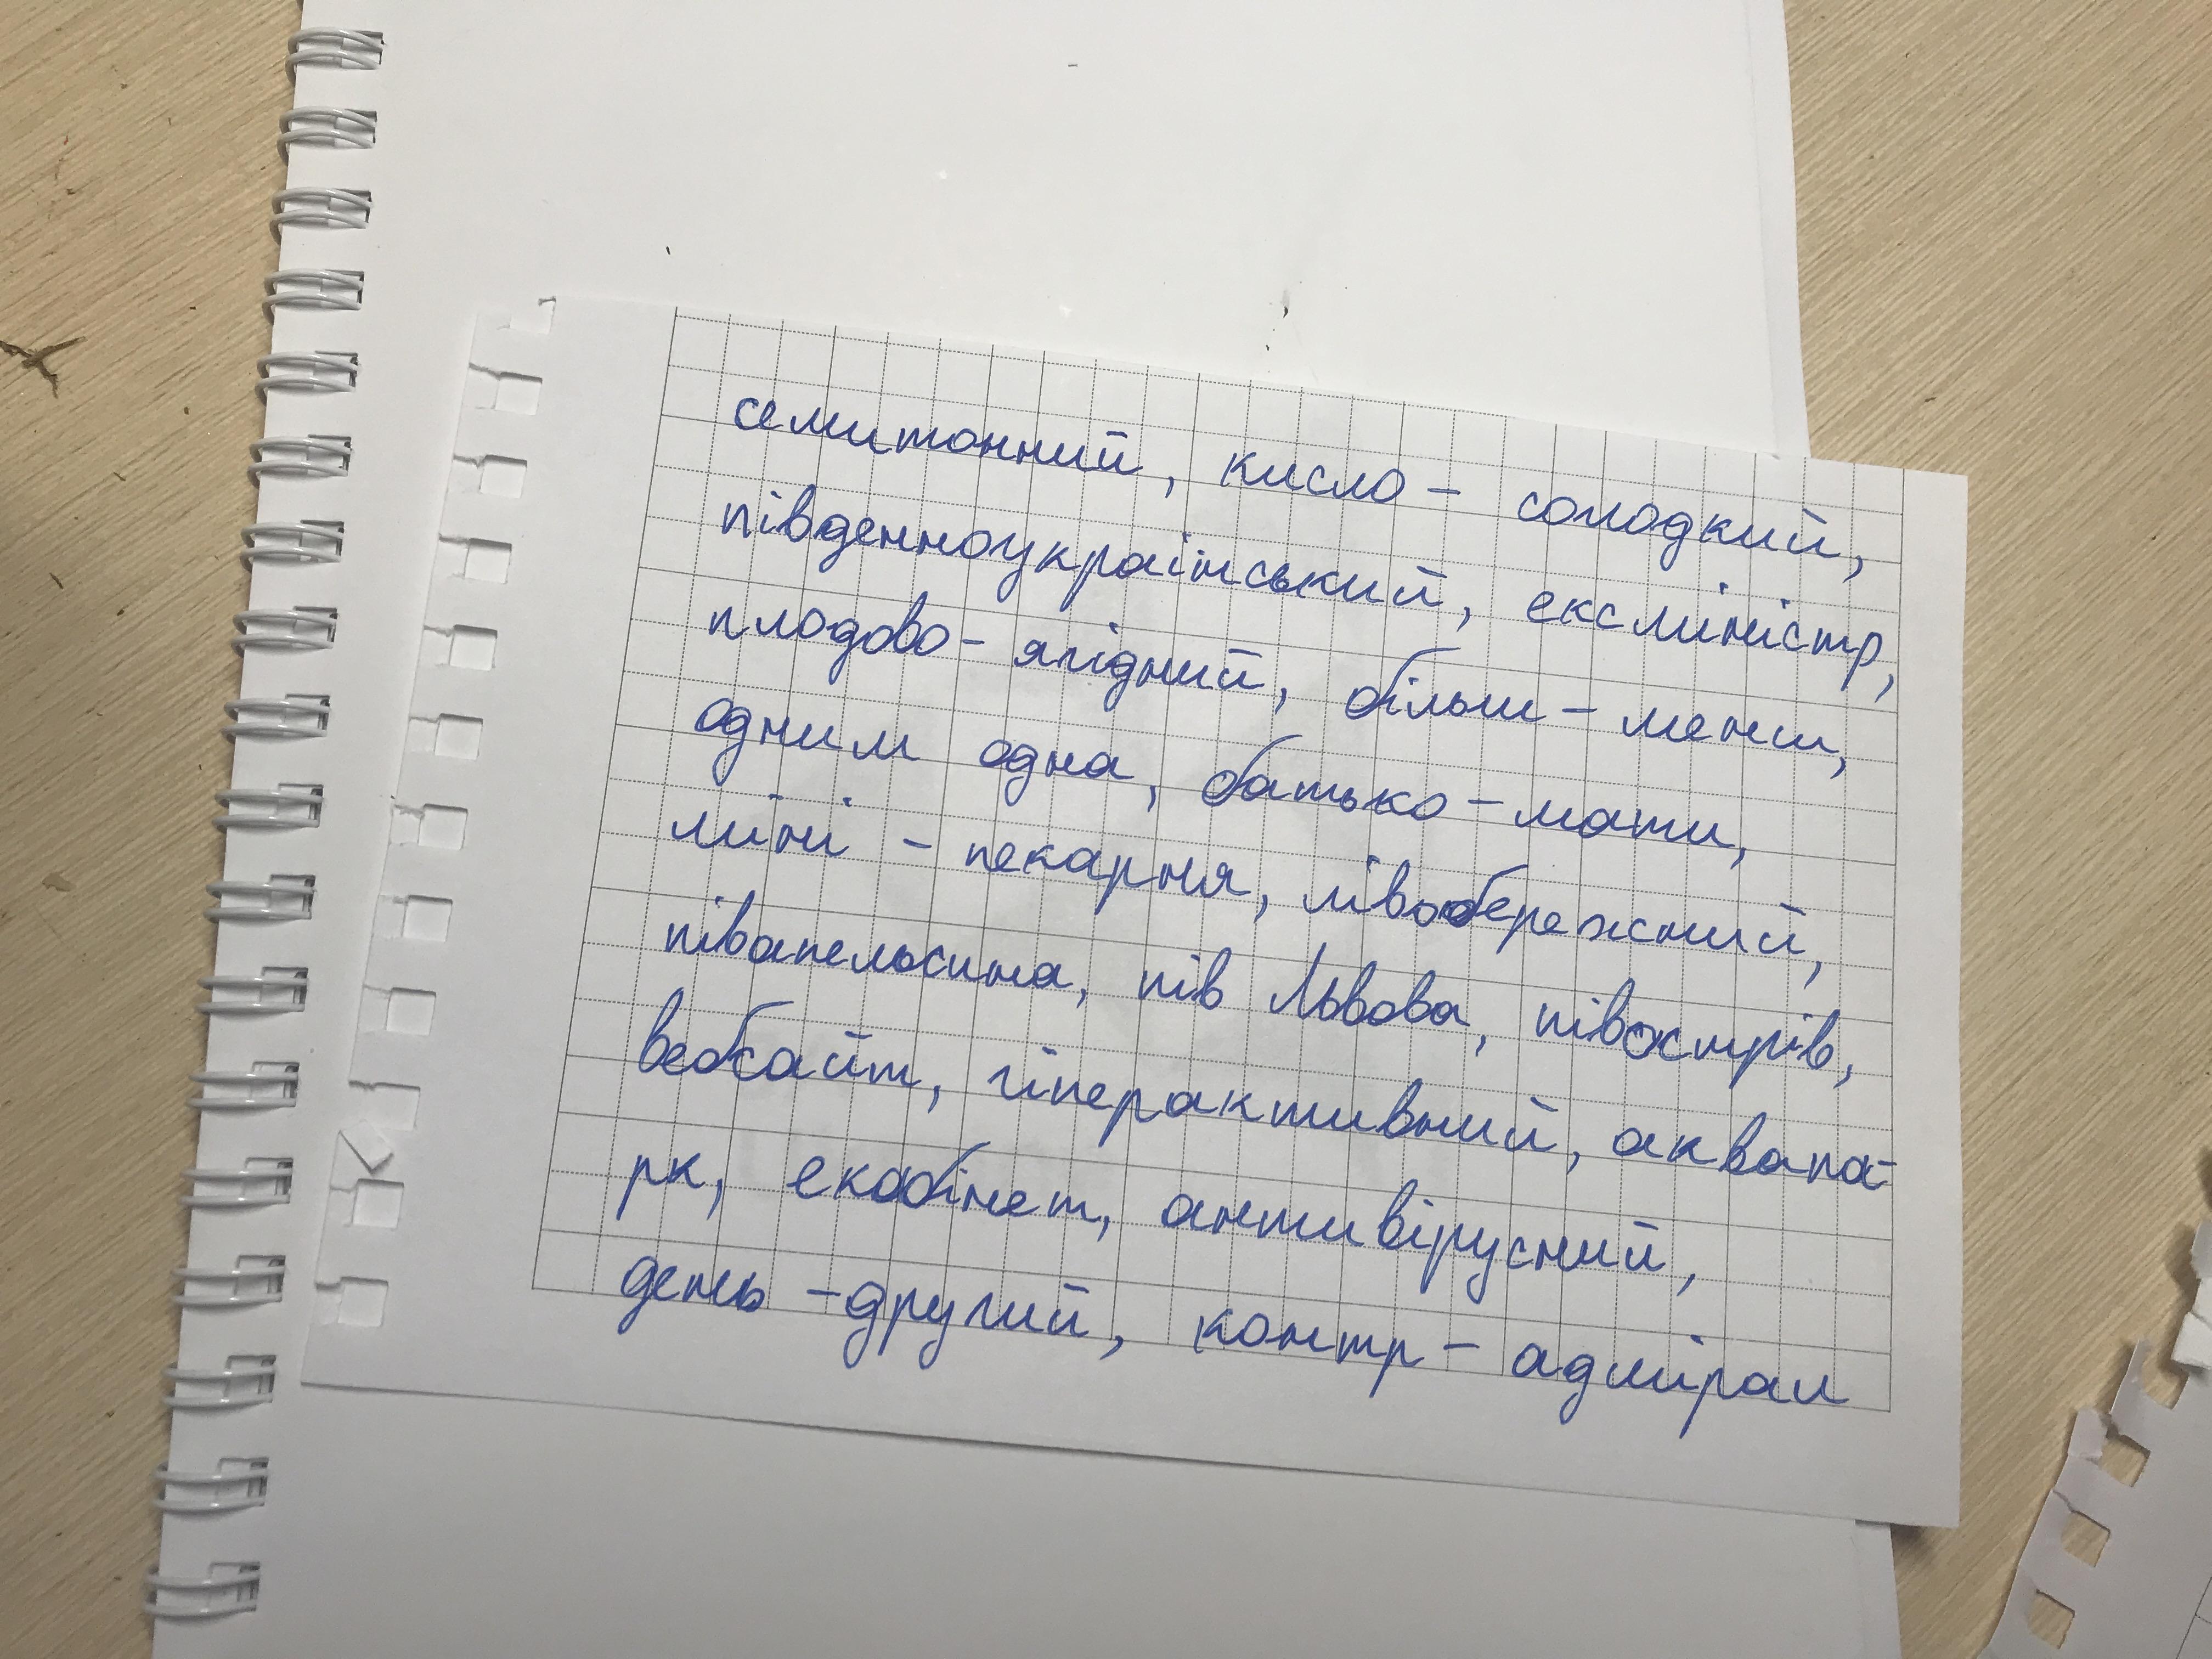 семитонний, кисло - солодкий,
південноукраїнський, ексміністр,
плодово - ягідний, більш - менш,
одним одна, батько - мати,
міні - пекарня, лівобережний,
півапельсина, пів Львова, півострів,
вебсайт, гіперактивний, аквапа-
рк, екабінет, антивірусний,
день - другий, контр - адмірал